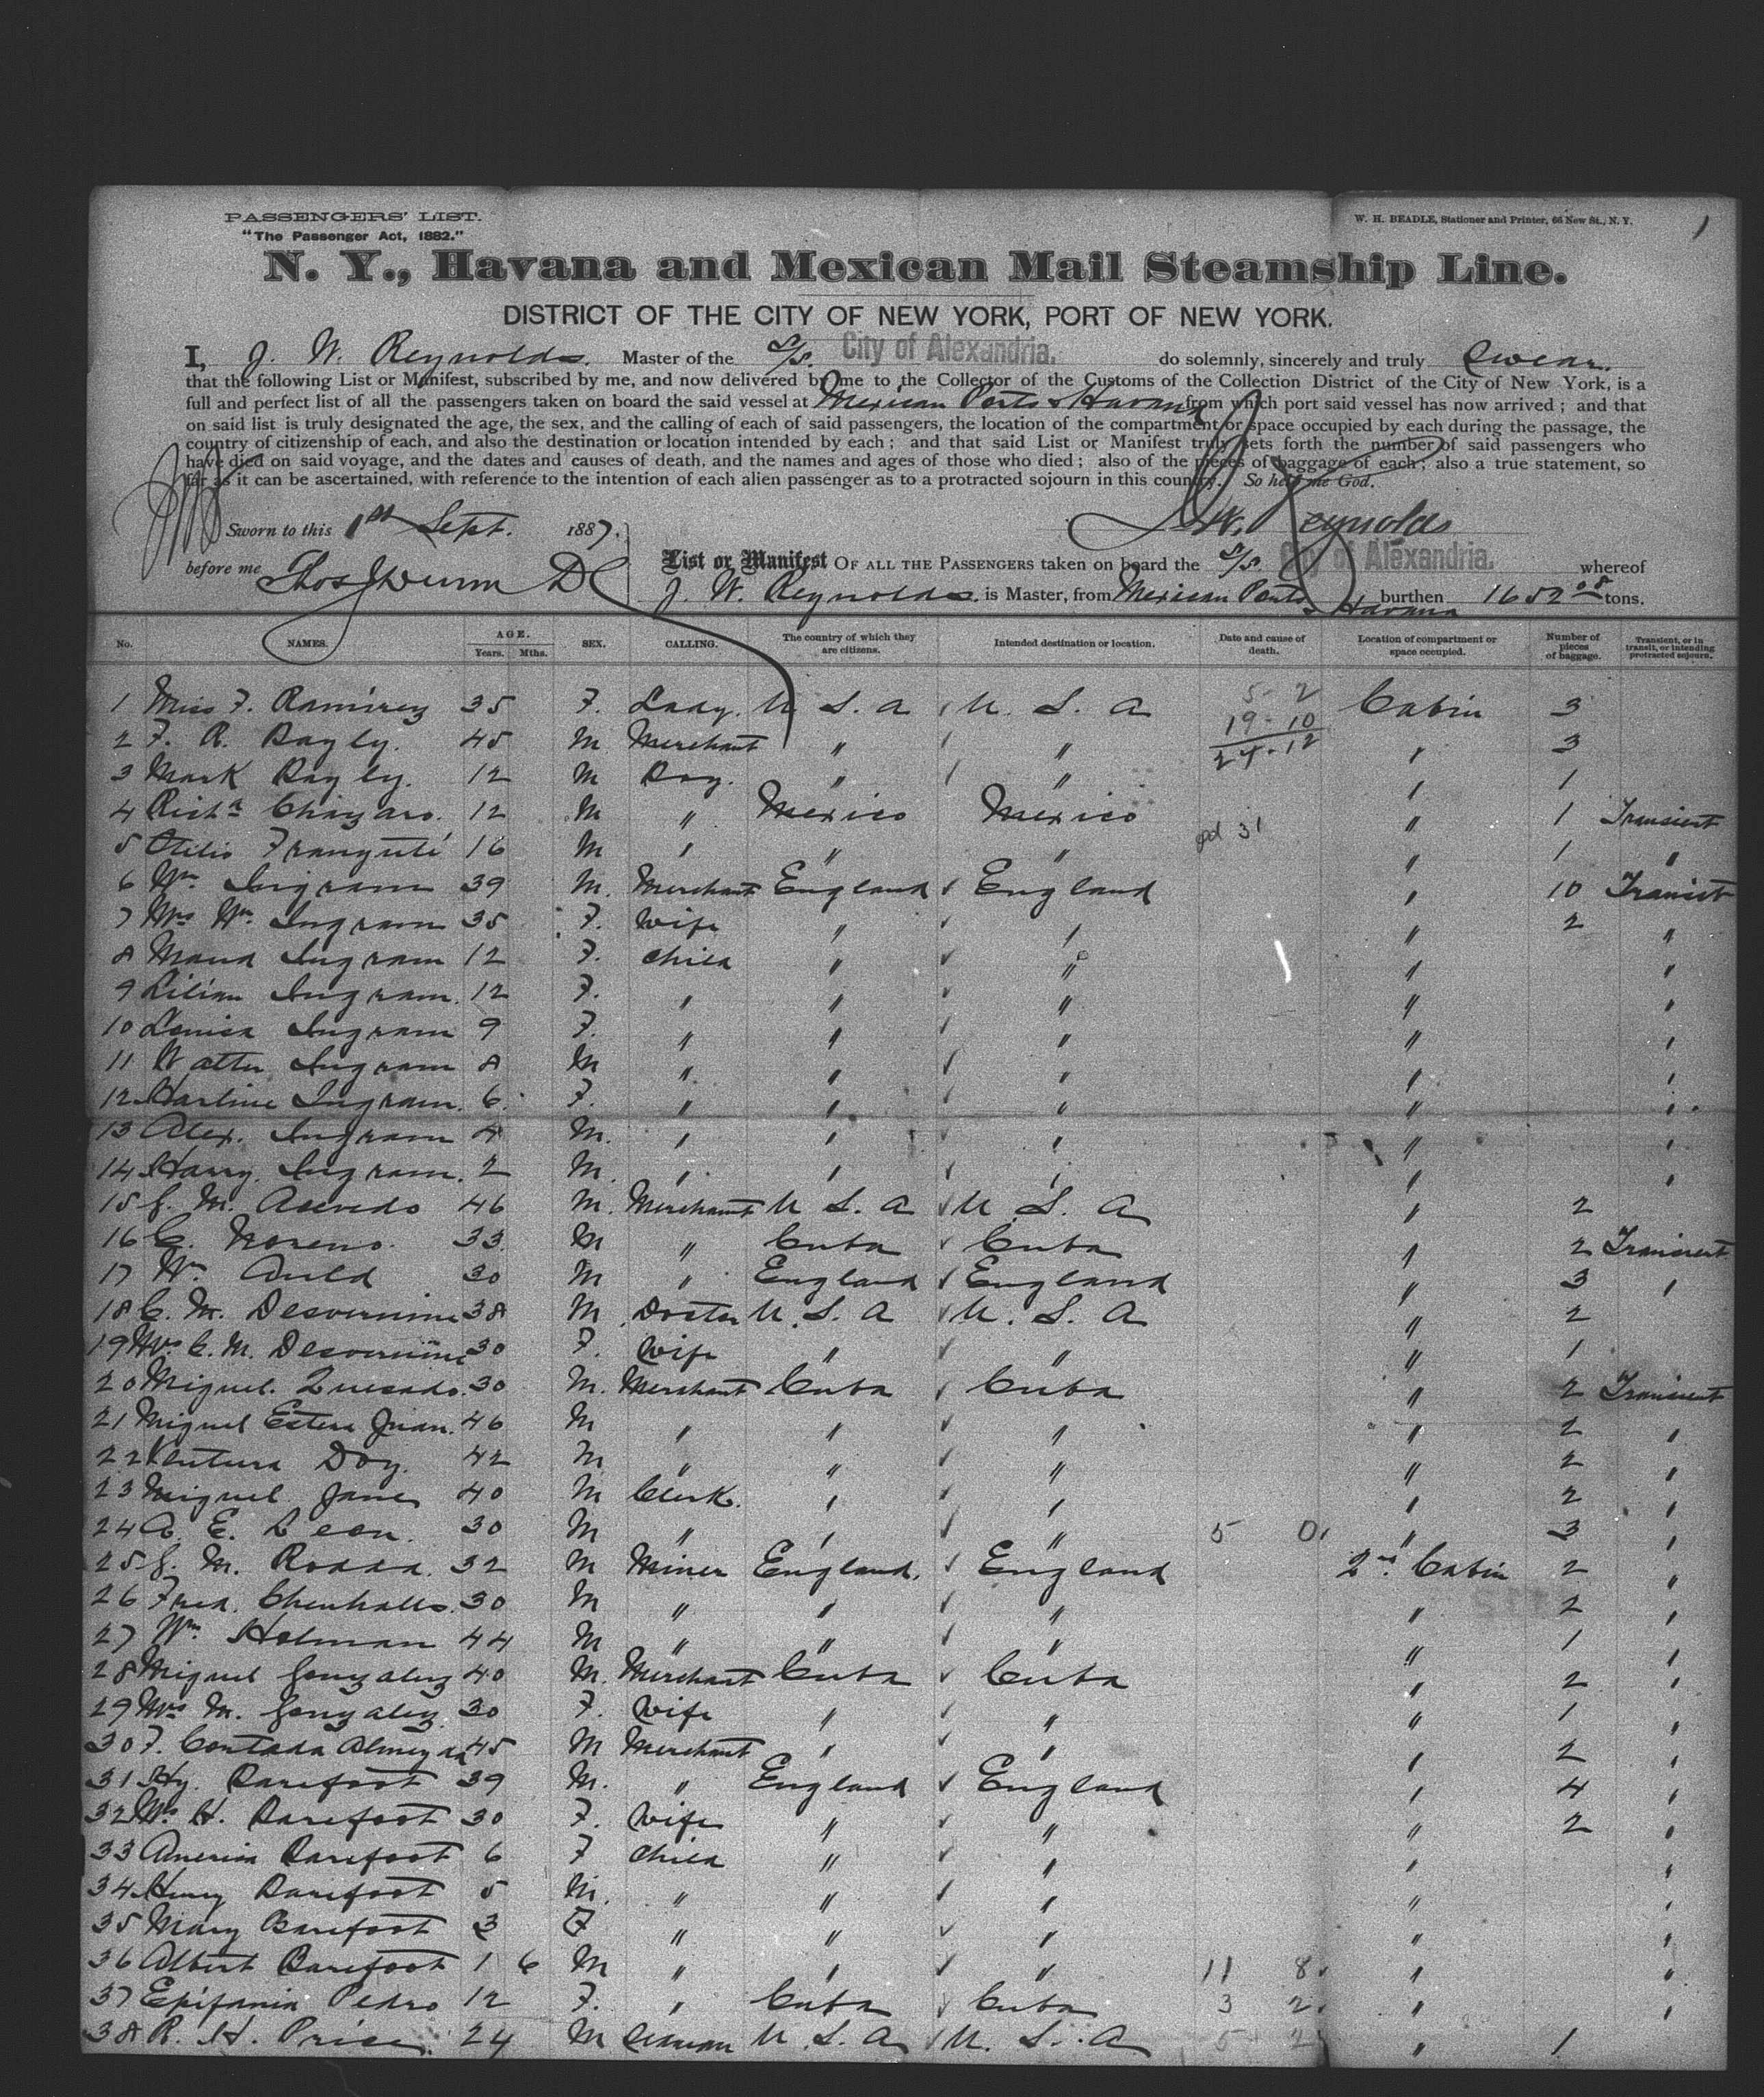 PASSENGERS' LIST.
"The Passenger Act, 1882."
W. H. BEADLE, Stationer and Printer, 66 New St., N. Y.
1
N. Y., Havana and Mexican Mail Steamship Line.
DISTRICT OF THE CITY OF NEW YORK, PORT OF NEW YORK.
I, J. W. Reynolds. Master of the S/S. City of Alexandria. do solemnly, sincerely and truly Swear.
that the following List or Manifest, subscribed by me, and now delivered by me to the Collector of the Customs of the Collection District of the City of New York, is a
full and perfect list of all the passengers taken on board the said vessel at Mexican Ports & Havana from which port said vessel has now arrived; and that
on said list is truly designated the age, the sex, and the calling of each of said passengers, the location of the compartment or space occupied by each during the passage, the
country of citizenship of each, and also the destination or location intended by each; and that said List or Manifest truly sets forth the number of said passengers who
have died on said voyage, and the dates and causes of death, and the names and ages of those who died; also of the pieces of baggage of each; also a true statement, so
far as it can be ascertained, with reference to the intention of each alien passenger as to a protracted sojourn in this country. So help me God.
Sworn to this 1st Sept. 1887.
J. W. Reynolds
before me Thos J Dunn DC
List or Manifest OF ALL THE PASSENGERS taken on board the S/S. City of Alexandria. whereof
J. W. Reynolds. is Master, from Mexican Ports & Havana burthen 1652 08 tons.
No. NAMES. AGE. Years. Mths. SEX. CALLING. The country of which they are citizens. Intended destination or location. Date and cause of death. Location of compartment or space occupied. Number of pieces of baggage. Transient, or in transit, or intending protracted sojourn.
1 Miss F. Ramirez 35 F. Lady. U S. A U. S. A 5-2 Cabin 3
19-10
2 F. R. Bagley. 45 M Merchant " " 24-12 " 3
3 Mark Bagley. 12 M Boy. " " " 1
4 Richd Chazaro. 12 M " Mexico Mexico " 1 Transient
5 Otilio Franguti 16 M " " " 31 " 1 "
6 Wm Ingram 39 M. Merchant England England " 10 Transit
7 Mrs Wm. Ingram 35 F. Wife " " " 2 "
8 Maud Ingram 12 F. Child " " " "
9 Lilian Ingram. 12 F. " " " " "
10 Louisa Ingram 9 F. " " " " "
11 Walter Ingram 8 M " " " " "
12 Ingram. 6 F. " " " " "
13 Alex. Ingram 4 M. " " " " "
14 Harry. Ingram. 2 M. " " " " "
15 J. M. Acevedo 46 M. Merchant U S. A U. S. A " 2
16 C. Moreno. 33 M " Cuba Cuba " 2 Transient
17 Wm Auld 30 M " England England " 3 "
18 C. M. Desvernine 38 M Doctor U. S. A U. S. A " 2
19 Mrs C. M. Desvernine 30 F. Wife " " " 1
20 Miguel. Quesado. 30 M. Merchant Cuba Cuba " 2 Transient
21 Miguel Juan. 46 M " " " " 2 "
22 Ventura Doy. 42 M " " " " 2 "
23 Miguel Jane 40 M Clerk. " " " 2 "
24 A. E. Leon. 30 M " " " 5 0 " 3 "
25 J. M. Rodda. 32 M Miner England. England 2nd Cabin 2 "
26 Fred. Chenhalls. 30 M " " " " 2 "
27 Wm. Holman 44 M " " " " 1 "
28 Miguel Gonzalez 40 M. Merchant Cuba Cuba " 2 "
29 Mrs M. Gonzalez. 30 F. Wife " " " 1 "
30 F. 45 M Merchant " " " 2 "
31 Hy. Barefoot 39 M. " England England " 4 "
32 Mrs H. Barefoot 30 F. Wife " " " 2 "
33 America Barefoot 6 F Child " " " "
34 Henry Barefoot 5 M. " " " " "
35 Mary Barefoot 3 F " " " " "
36 Albert Barefoot 1 6 M " " " 11 8 " "
37 Epifania Pedro 12 F. " Cuba Cuba 3 2 " "
38 R. H. Price. 24 M Seaman U. S. A U. S. A 5 2 " 1